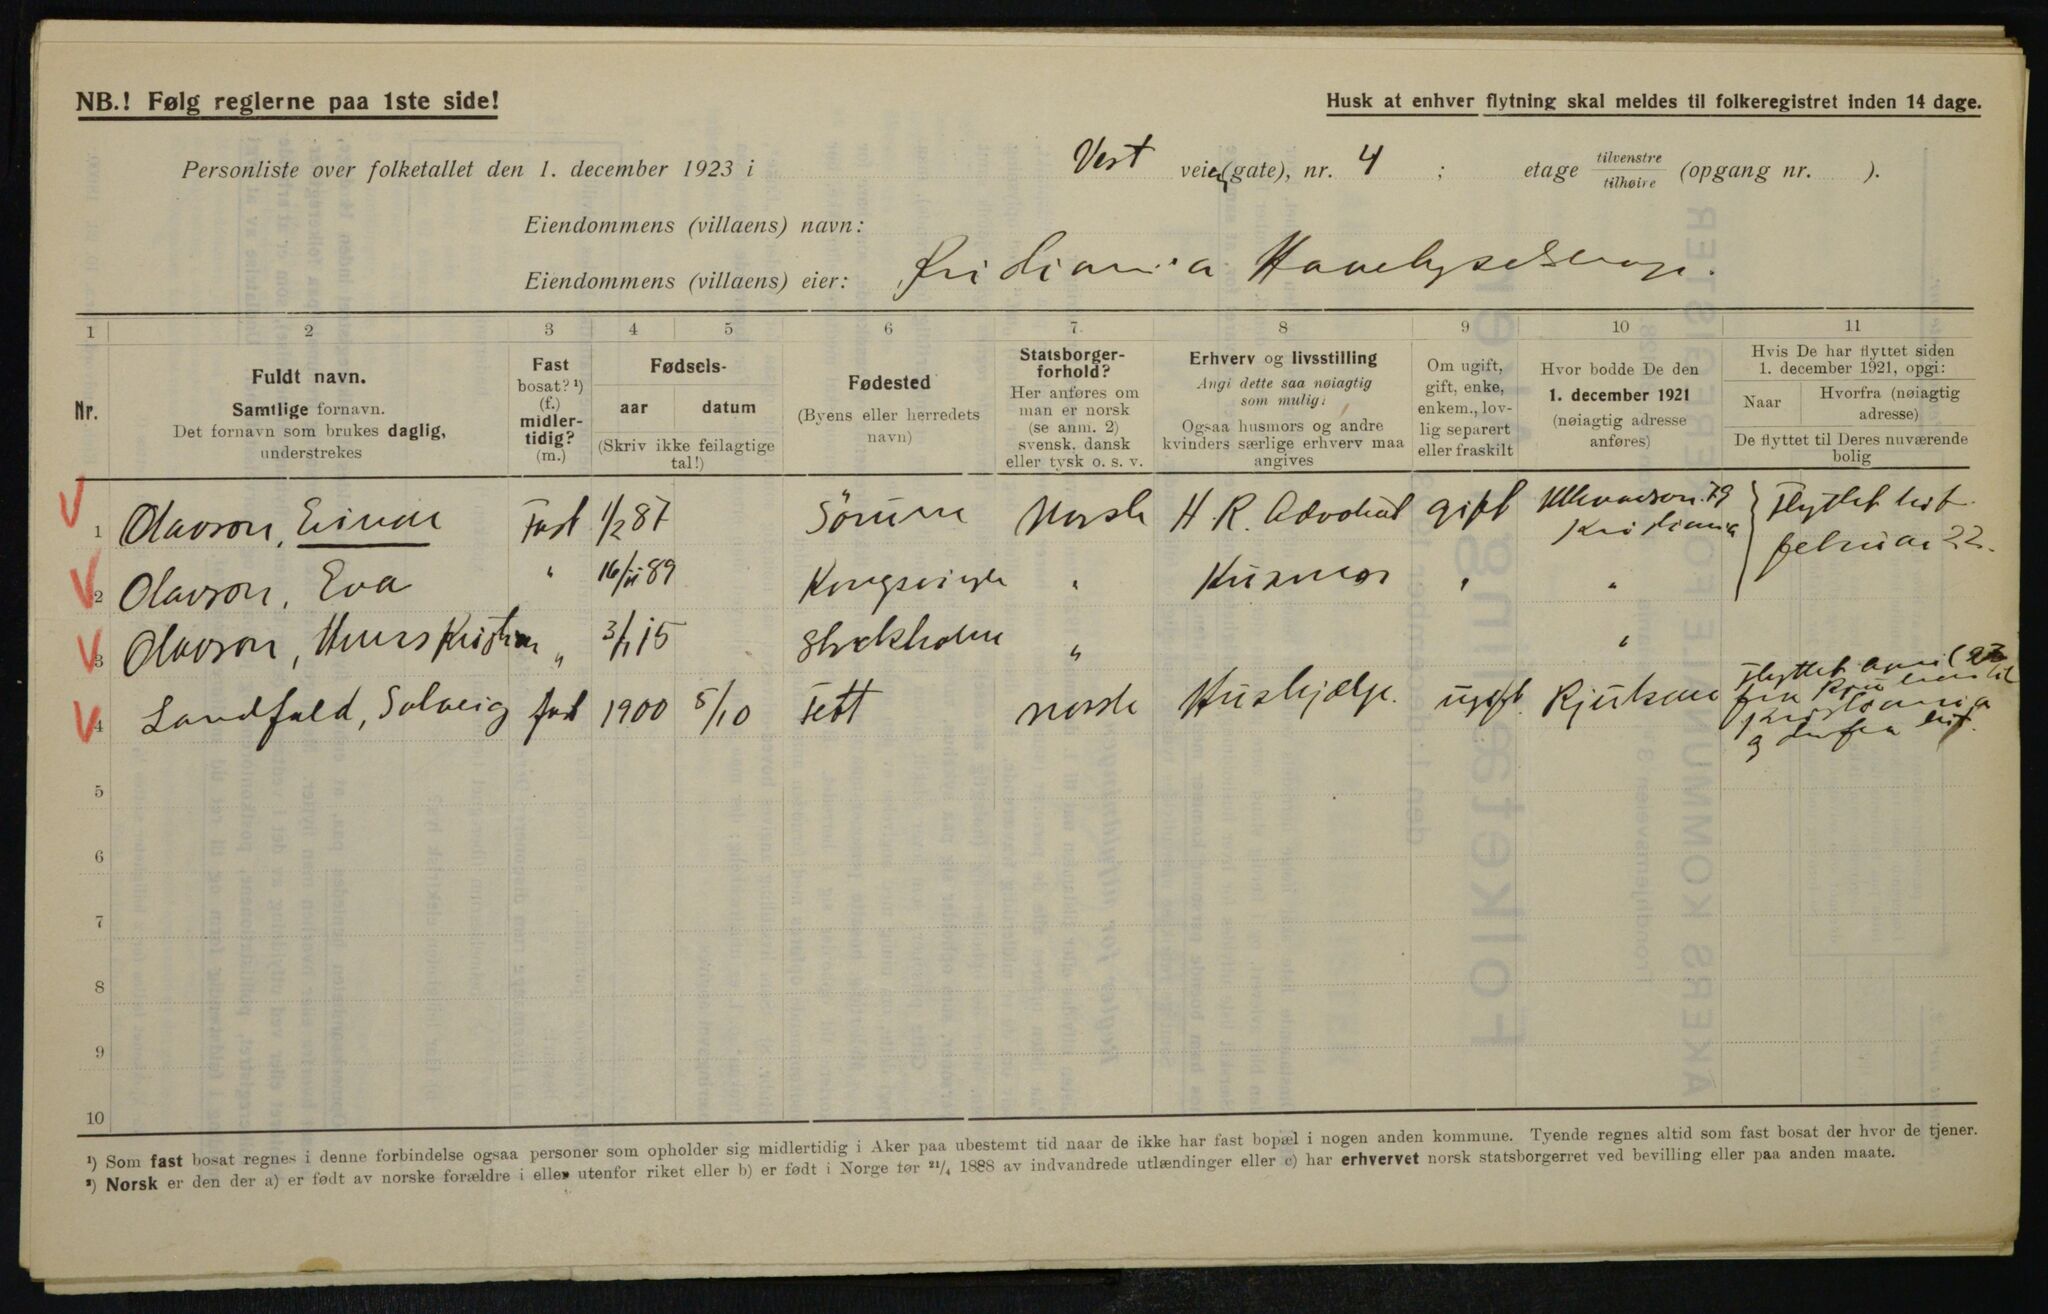 NB.! Følg reglerne paa 1ste side!
Husk at enhver flytning skal meldes til folkeregistret inden 14 dage.
Personliste over folketallet den 1. december 1923 i Vest veien (gate), nr. 4 ; etage tilvenstre / tilhøire (opgang nr. ).
Eiendommens (villaens) navn:
Eiendommens (villaens) eier: Kristiania Havebyselskap.
1 2 3 4 5 6 7. 8 9 10 11
Nr.
Fuldt navn.
Samtlige fornavn.
Det fornavn som brukes daglig,
understrekes
Fast
bosat? ¹)
(f.)
midler-
tidig?
(m.)
Fødsels-
aar datum
(Skriv ikke feilagtige
tal!)
Fødested
(Byens eller herredets
navn)
Statsborger-
forhold?
Her anføres om
man er norsk
(se anm. 2)
svensk, dansk
eller tysk o. s. v.
Erhverv og livsstilling
Angi dette saa nøiagtig
som mulig;
Ogsaa husmors og andre
kvinders særlige erhverv maa
angives
Om ugift,
gift, enke,
enkem., lov-
lig separert
eller fraskilt
Hvor bodde De den
1. december 1921
(nøiagtig adresse
anføres)
Hvis De har flyttet siden
1. december 1921, opgi:
Naar Hvorfra (nøiagtig
adresse)
De flyttet til Deres nuværende
bolig
1 Olavson, Einar Fast 1/2 87 Sörum Norsk H. R. Advokat gift 79 Kristiania Flyttet hit februar 22.
2 Olavson, Eva " 16/11 89 Kongsvinger " Husmor " "
3 Olavson, Hans Kristian " 3/1 15 Stockholm " "
4 Landfald, Solveig fast 1900 5/10 Tett norsk Hushjælp. ugift. Rjukan Flyttet april 23
fra Rjukan til
Kristiania
og derfra hit.
5
6
7
8
9
10
¹) Som fast bosat regnes i denne forbindelse ogsaa personer som opholder sig midlertidig i Aker paa ubestemt tid naar de ikke har fast bopæl i nogen anden kommune. Tyende regnes altid som fast bosat der hvor de tjener.
²) Norsk er den der a) er født av norske forældre i eller utenfor riket eller b) er født i Norge før 21/4 1888 av indvandrede utlændinger eller c) har erhvervet norsk statsborgerret ved bevilling eller paa anden maate.